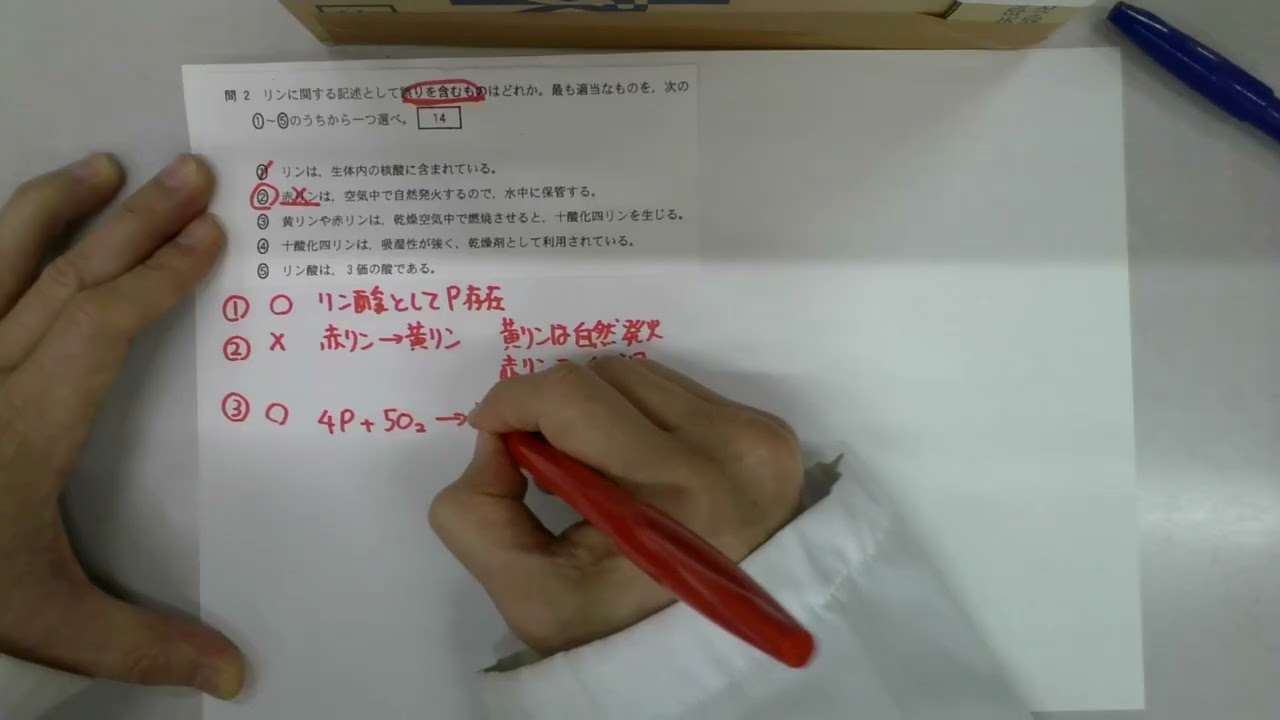 問2 リンに関する記述として誤りを含むものはどれか。最も適当なものを、次の
①~⑤のうちから一つ選べ。 14
① リンは、生体内の核酸に含まれている。
② 赤リンは、空気中で自然発火するので、水中に保管する。
③ 黄リンや赤リンは、乾燥空気中で燃焼させると、十酸化四リンを生じる。
④ 十酸化四リンは、吸湿性が強く、乾燥剤として利用されている。
⑤ リン酸は、3価の酸である。
① ○ リン酸としてP存在
② × 赤リン→黄リン 黄リンは自然発火
赤リン
③ ○ 4P+5O₂→